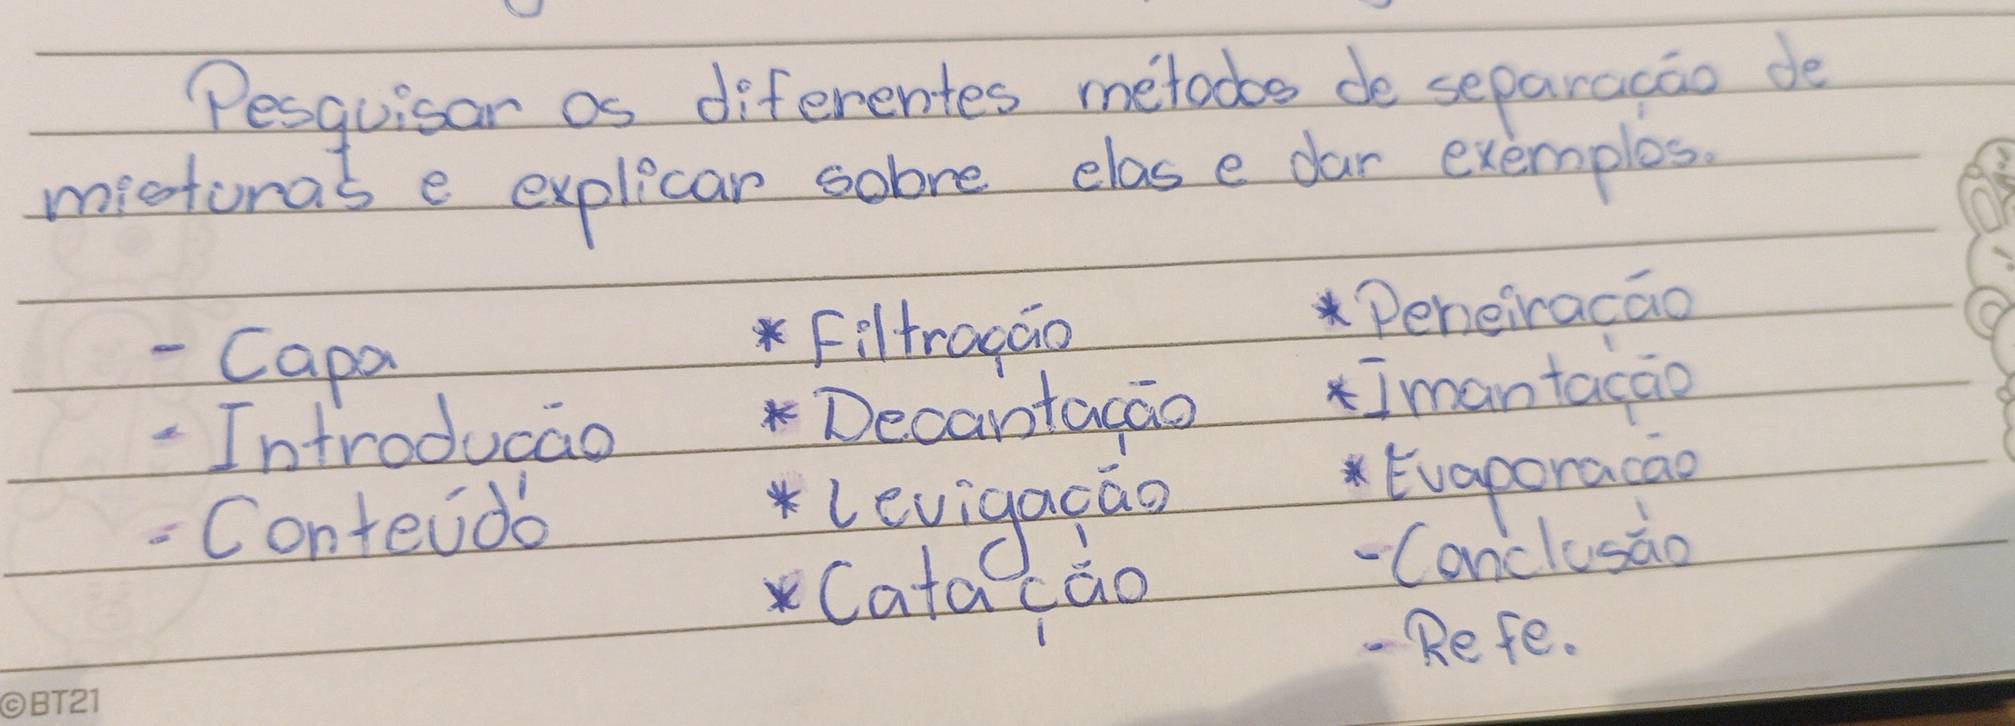 Pesquisar os diferentes métodos de separação de
misturas e explicar sobre elas e dar exemplos.
- Capa
- Introdução
- Conteúdo
* Filtração
* Decantação
* Levigação
* Catação
* Peneiração
* Imantação
* Evaporação
- Conclusão
- Refe.
©BT21